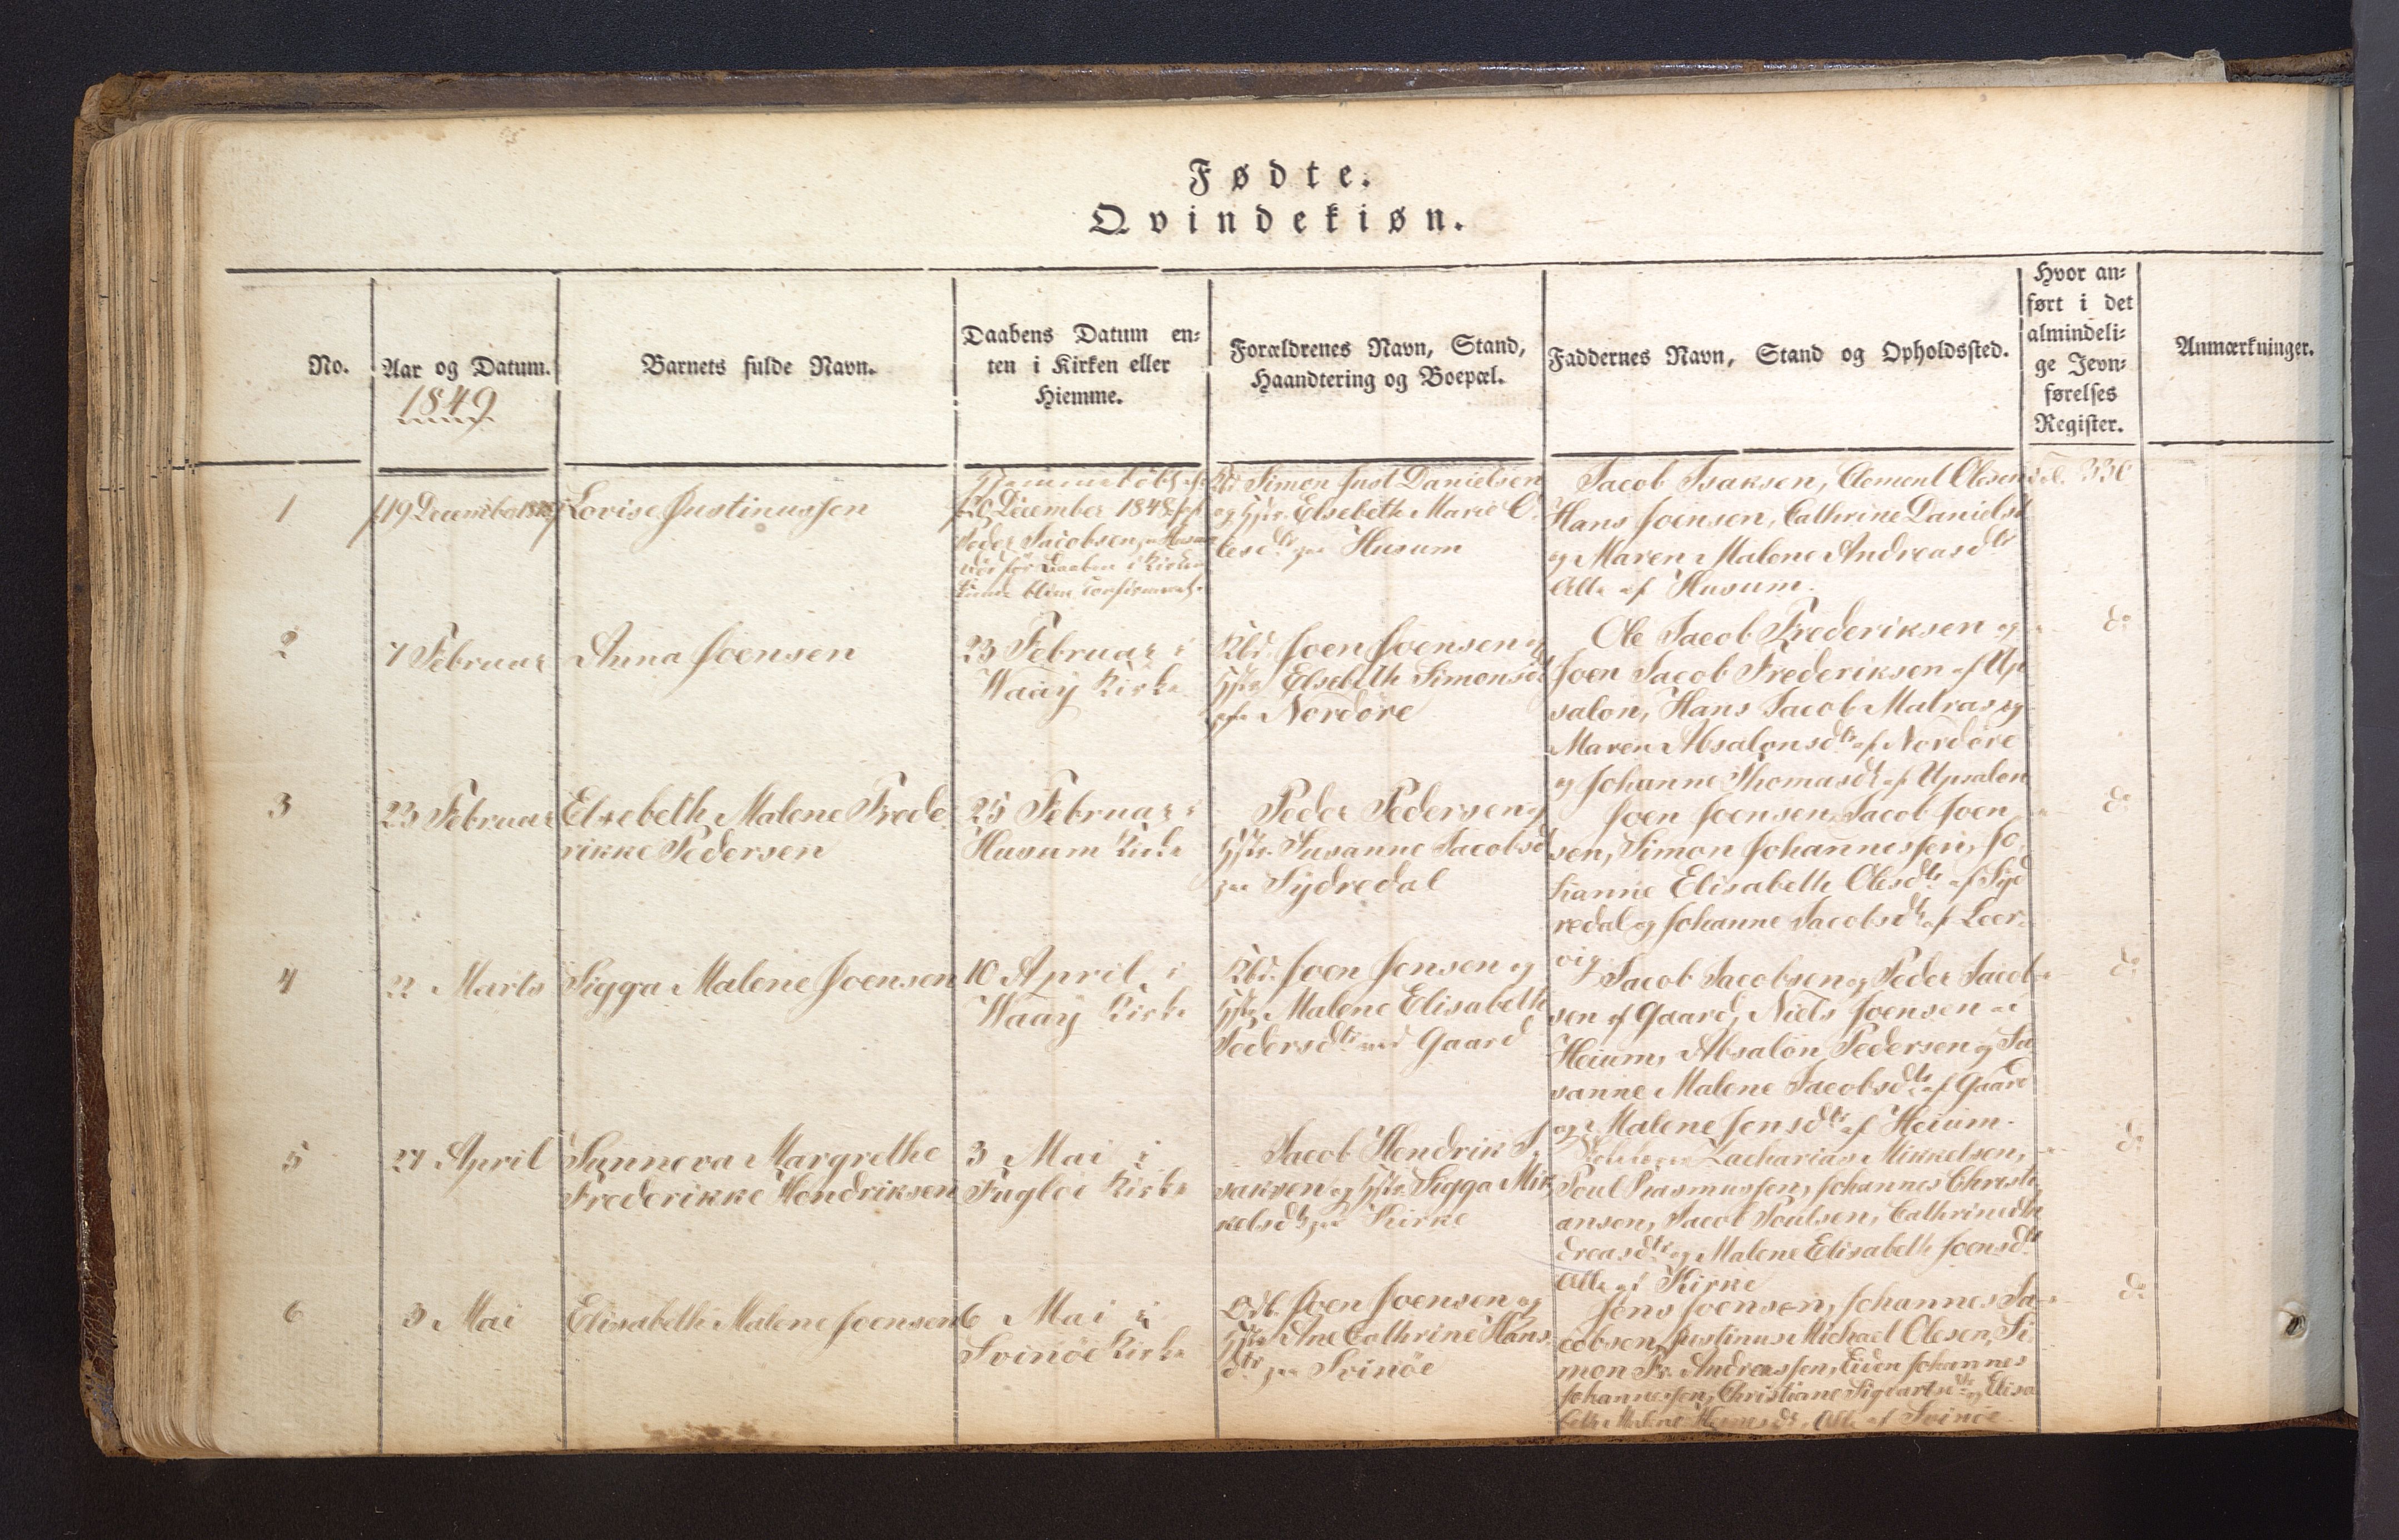 Fødte.
Qvindekiøn.
No.
Aar og Datum.
1849
Barnets fulde Navn.
Daabens Datum en-
ten i Kirken eller
Hiemme.
Forældrenes Navn, Stand,
Haandtering og Boepæl.
Faddernes Navn, Stand og Opholdssted.
Hvor an-
ført i det
almindeli-
ge Jevn-
førelses
Register.
Anmærkninger.
1
19 December 1848
Lovise Justinussen
Hjemmedøbt
20 December 1848 af
Peder Jacobsen
før Daaben i Kirken
kunde blive confirmeret.
Simon Just Danielsen
og Hstr. Elsebeth Marie O-
lesdtr paa Husum
Jacob Isaksen, Clement Olesen
Hans Joensen, Cathrine Danielsd
og Maren Malene Andreasdtr
Alle af Husum.
330
2
7 Februar
Anna Joensen
23 Februar i
Waaÿ Kirke
Kbd. Joen Joensen og
Hstr Elsebeth Simonsdt
paa Nordøre
Ole Jacob Frederiksen og
Joen Jacob Frederiksen af Up
salon, Hans Jacob Matras og
Maren Absalonsdtr af Nordøre
og Johanne Thomasdt af Upsalon
do
3
23 Februar
Elsebeth Malene Frede
rikke Pedersen
25 Februar i
Husum Kirke
Peder Pedersen og
Hstr. Susanne Jacobsd
paa Sÿdredal
Joen Joensen, Jacob Joen
sen, Simon Johannessen, Jo
hanne Elisabeth Olesdtr af Syd
redal og Johanne Jacobsdt af Leer-
vig
do
4
22 Marts
Sigga Malene Joensen
10 April i
Waaÿ Kirke
Kbd. Joen Jensen og
Hstr Malene Elisabeth
Pedersdtr ved Gaard
Jacob Jacobsen og Peder Jacob
sen af Gaard, Niels Joensen af
Heium, Absalon Pedersen og Su
sanne Malene Jacobsdtr af Gaard
og Malene Jensdtr af Heium.
do
5
27 April
Sunneva Margrethe
Frederikke Hendriksen
3 Mai i
Fugloe Kirke
Jacob Hendrik I-
saksen og Hstr. Sigga Mik
kelsdt paa Kirke
Zacharias Mikkelsen,
Poul Rasmussen, Johannes Christi
ansen, Jacob Poulsen, Cathrine An
dreasdtr og Malene Elisabeth Joensdtr
Alle af Kirke
do
6
3 Mai
Elisabeth Malene Joensen
6 Mai i
Svinöe Kirke
Odb. Joen Joensen og
Hstr Ane Cathrine Hans
dtr paa Svinöe
Jens Joensen, Johannes Ja
cobsen, Justinus Michael Olesen, Si
mon Fr. Andreassen, Eiden Johannes
Johannessen, Christiane Sigvartsdtr og Elisa
beth Malene Alle af Svinöe.
do